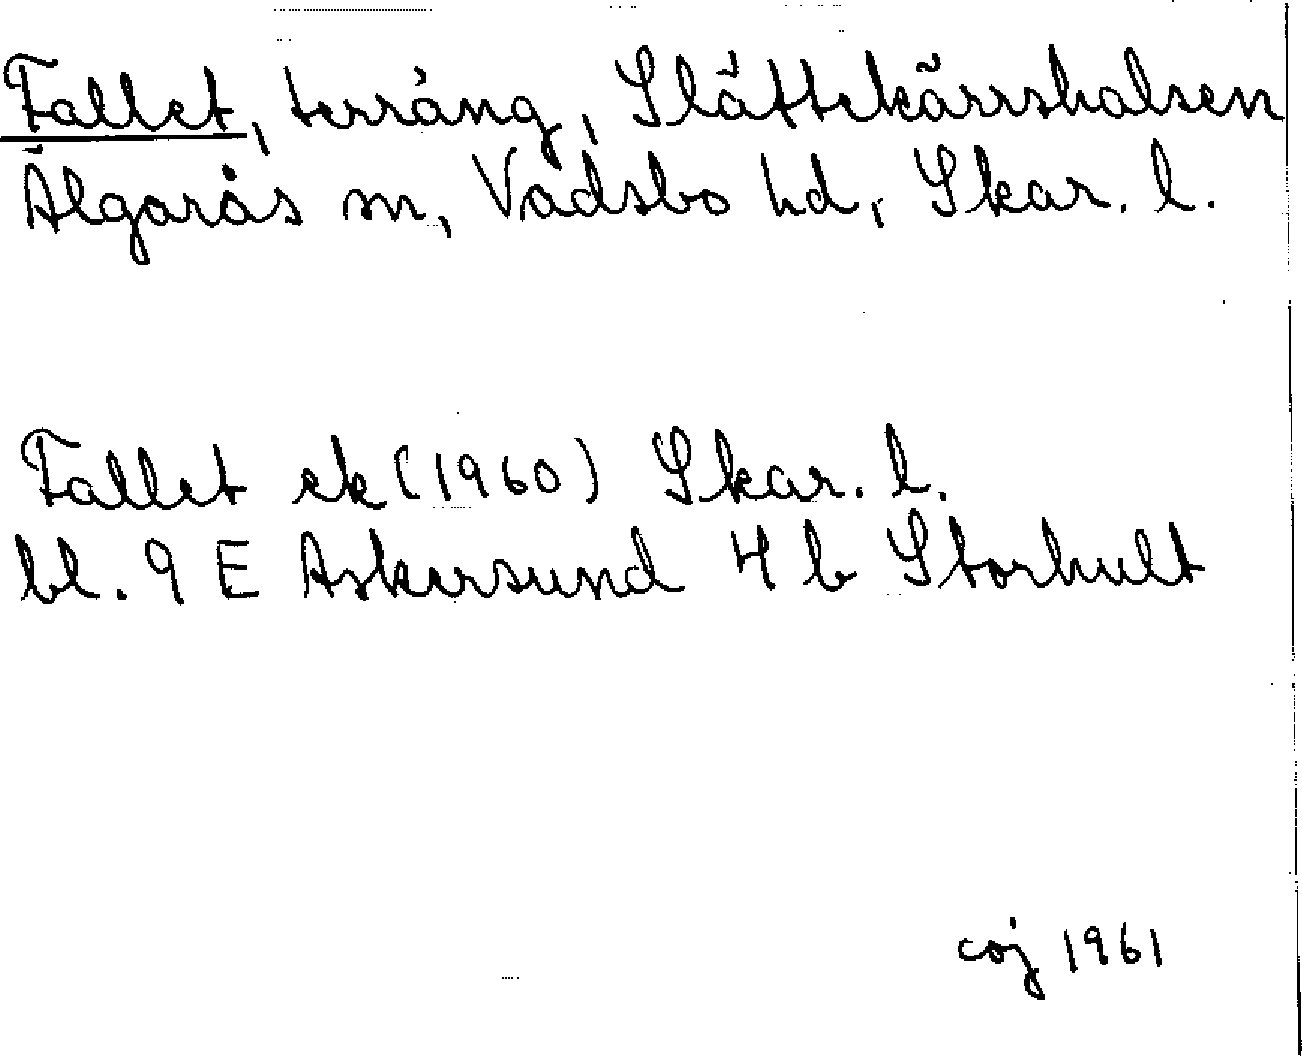 Fallet, terräng, Slättekärrshalsen
Älgarås sn, Vadsbo hd, Skar. l.
Fallet ek (1960) Skar. l.
bl. 9 E Askersund 4 b Storhult
coj 1961